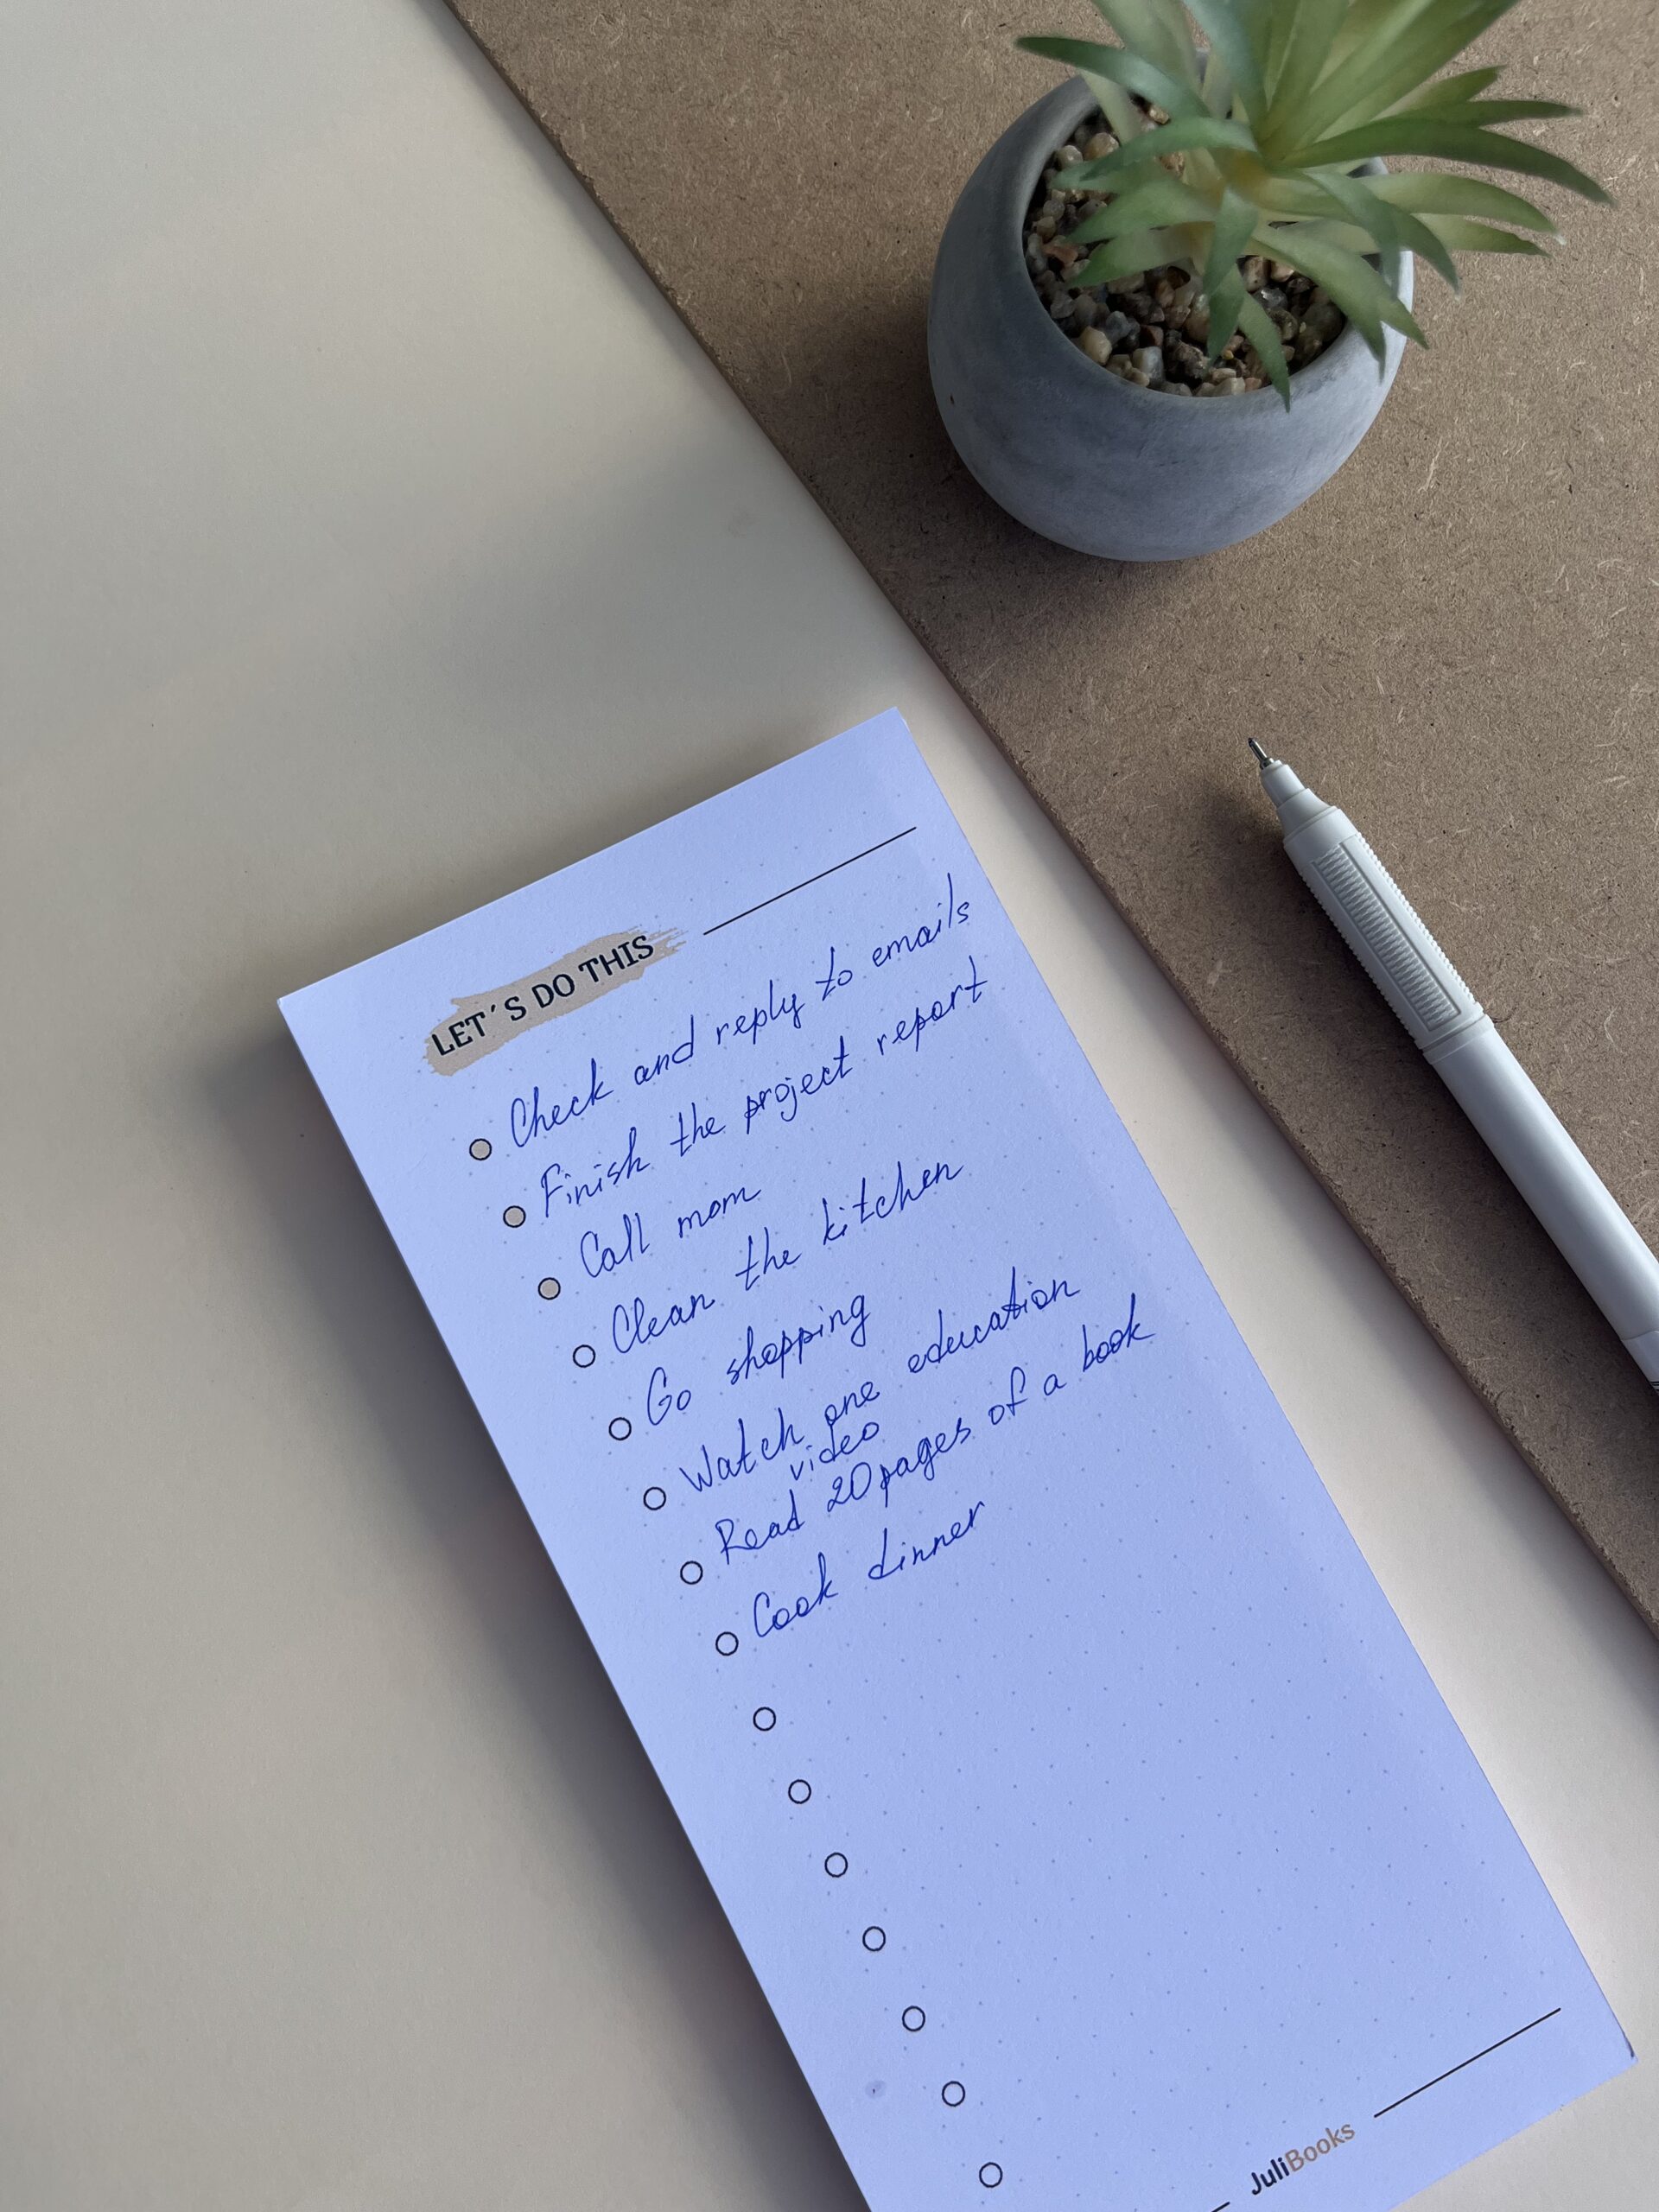 LET´S DO THIS
Check and reply to emails
Finish the project report
Call mom
Clean the kitchen
Go shopping
Watch one education
video
Read 20 pages of a book
Cook dinner
JuliBooks